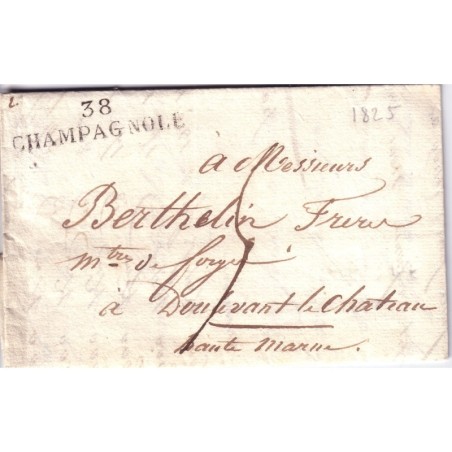 38
CHAMPAGNOLE
1825
à Messieurs
Berthelin Freres
mtres de forges
à Doulevant le Chateau
haute Marne.